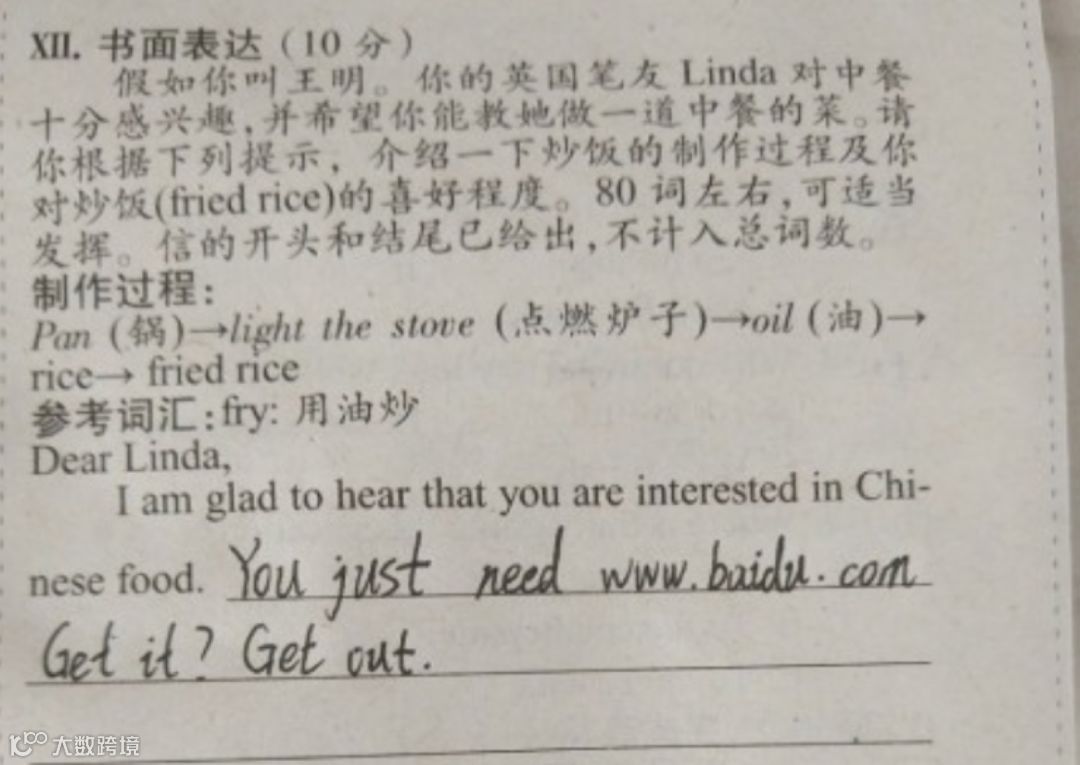 XII. 书面表达（10 分）
假如你叫王明。你的英国笔友 Linda 对中餐
十分感兴趣,并希望你能教她做一道中餐的菜。请
你根据下列提示, 介绍一下炒饭的制作过程及你
对炒饭(fried rice)的喜好程度。80 词左右,可适当
发挥。信的开头和结尾已给出,不计入总词数。
制作过程:
Pan (锅)→light the stove (点燃炉子)→oil (油)→
rice→ fried rice
参考词汇:fry: 用油炒
Dear Linda,
I am glad to hear that you are interested in Chi-
nese food. You just need www.baidu.com
Get it? Get out.
大数跨境